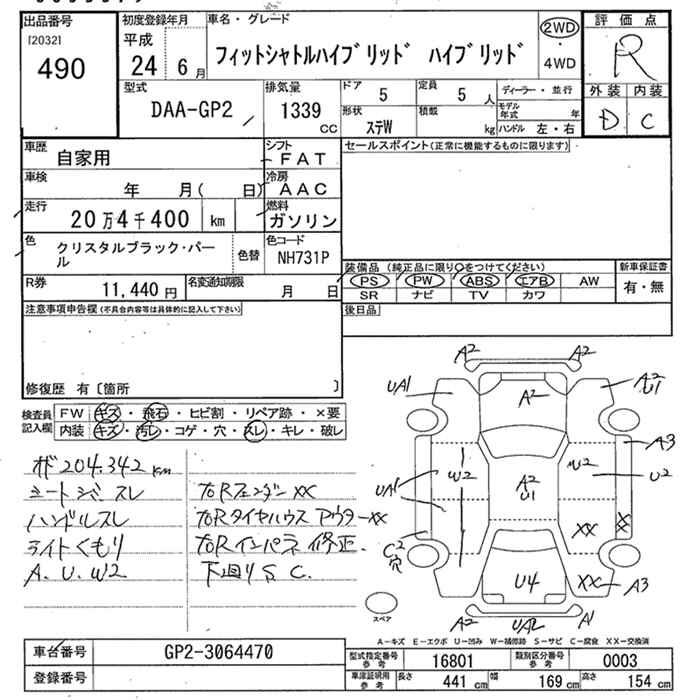 出品番号
[2032]
490
初度登録年月
平成
24年 6月
車名・グレード
フィットシャトルハイブリッド ハイブリッド
2WD
・
4WD
評価点
R
外装 内装
D C
型式
DAA-GP2
排気量
1339
cc
ドア 5
定員 5 人
ディーラー・並行
形状 ステW
積載 kg
モデル年式 年
ハンドル 左・右
車歴
自家用
シフト
FAT
車検
年 月( 日)
冷房
AAC
走行
20万4千400 km
燃料
ガソリン
色
クリスタルブラック・パール
色替
色コード
NH731P
R券
11,440 円
名変通知期限
月 日
セールスポイント(正常に機能するものに限ります)
装備品 (純正品に限り○をつけてください)
PS PW ABS エアB AW
SR ナビ TV カワ
新車保証書
有・無
後日品
注意事項申告欄 (不具合内容等は具体的に記入して下さい)
修復歴 有〔箇所 〕
検査員記入欄
FW キズ・飛石・ヒビ割・リペア跡・×要
内装 キズ・汚レ・コゲ・穴・スレ・キレ・破レ
204,342 km
シートシミ スレ
ハンドルスレ
ライトくもり
A. U. W2
右Rフェンダー XX
右Rタイヤハウス アウター XX
右Rインパネ 修正.
下廻り S C.
A2 A2
UA1 A2 A2 U1
A3
W2 A2 U1 W2 U2
UA1
XX XX
C2 穴
U4 XX A3
A2 UA2 A1
スペア
A-キズ E-エクボ U-凹み W-補修跡 S-サビ C-腐食 XX-交換済
車台番号
GP2-3064470
登録番号
型式指定番号 参考
16801
類別区分番号 参考
0003
車庫証明用 参考
長さ 441 cm
幅 169 cm
高さ 154 cm